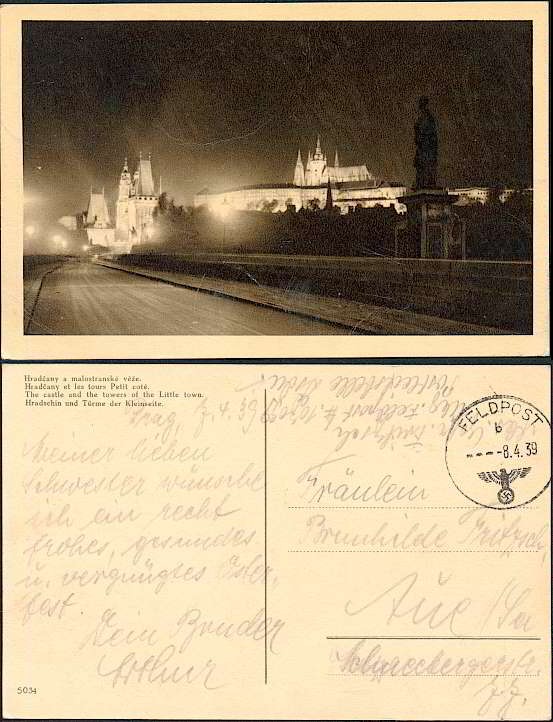 Hradčany a malostranské věže.
Hradčany et les tours Petit coté.
The castle and the towers of the Little town.
Hradschin und Türme der Kleinseite.
Prag, 4. 39
Meiner lieben
Schwester wünsche
ich ein recht
frohes, gesundes
u. vergnügtes Oster-
fest.
Dein Bruder
Arthur
5034
FELDPOST
b
---8.4.39
Fräulein
Brunhilde Fritzsch,
Aue/Sa
Schneebergerstr.